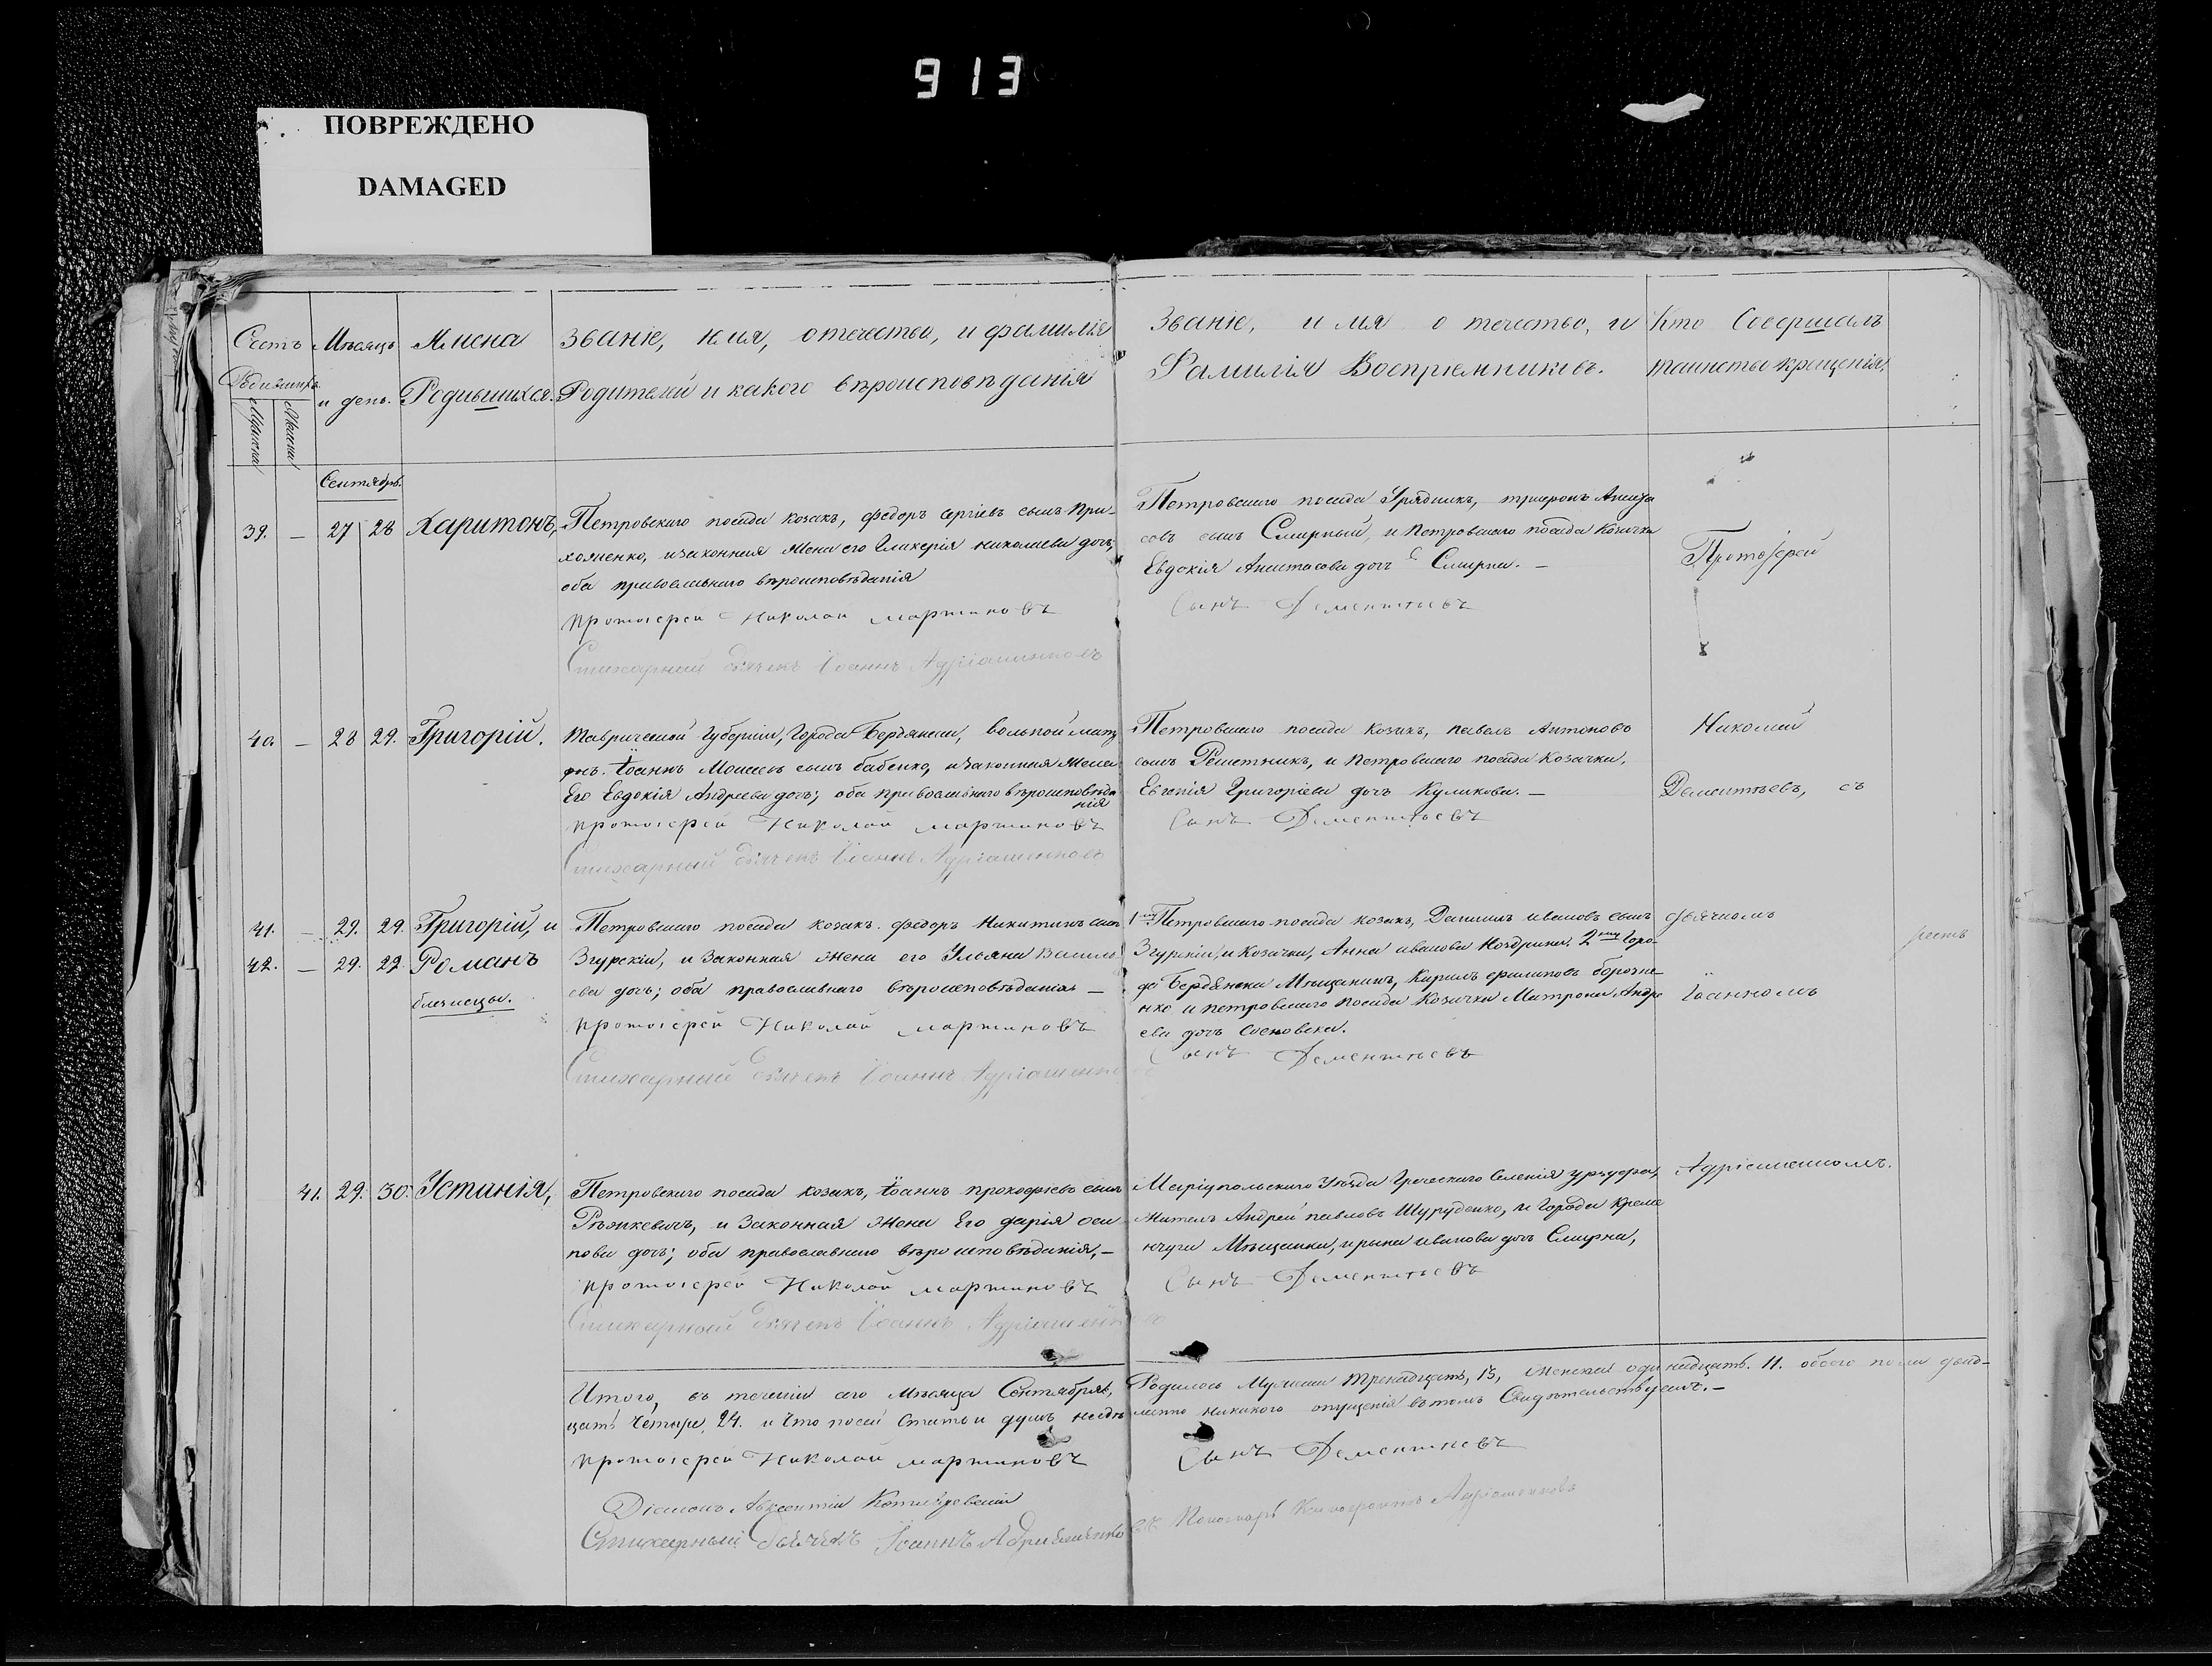 913
ПОВРЕЖДЕНО
DAMAGED
Счетъ
Родившихся
Мужска
Женска
Мѣсяцъ
и день.
Имена
Родившихся.
Званіе, имя, отечество, и фамилія
Родителей и какого вѣроисповѣданія
Званіе, имя отечество, и
Фамилія Воспріемниковъ.
Кто Совершалъ
таинство крещенія.
Сентябрь.
39. — 27 28 Харитонъ,
Петровскаго посада козакъ, Федоръ Сергіевъ сынъ При-
хоженко, и законная Жена его Гликерія николаева дочь;
оба православнаго вѣроисповѣданія
протоіерей Николай мартиновъ
Стихарный дьячекъ Іоаннъ Адріашенковъ
Петровскаго посада Урядникъ, Анаста
совъ сынъ Смирный, и Петровскаго посада Козачка
Евдокія Анастасова дочь Смирна. —
Сынъ Дементьевъ
Протоіерей
40. — 28 29. Григорій.
Таврической Губерніи, Города Бердянска, вольной матр
осъ. Іоаннъ Моисеевъ сынъ бабенко, и Законная Жена
Его Евдокія Андреева дочь; оба православнаго вѣроисповѣда
нія
протоіерей Николай мартиновъ
Стихарный дьячекъ Іоаннъ Адріашенковъ
Петровскаго посада Козакъ, павелъ Антоновъ
сынъ Решетникъ, и Петровскаго посада Козачка,
Евгенія Григоріева дочь Куликова. —
Сынъ Дементьевъ
Николай
Дементьевъ, съ
41. — 29. 29. Григорій, и
42. — 29. 29. Романъ
близнецы.
Петровскаго посада козакъ. Федоръ Никитинъ сынъ
Згурскій, и Законная Жена его Ульяна Василь
ева дочь; оба православнаго вѣроисповѣданія —
протоіерей Николай мартиновъ
Стихарный дьячекъ Іоаннъ Адріашенковъ
1го Петровскаго посада козакъ, Даніилъ ивановъ сынъ
Згурскій, и Козачка, Анна иванова Ноздрина. 2го Горо-
да Бердянска Мѣщанинъ, Кирилъ филиповъ
нко и петровскаго посада Козачка Матрона Андре
ева дочь Сосновска.
Сынъ Дементьевъ
дьячкомъ
Іоанномъ
41. 29. 30. Устинія,
Петровскаго посада козакъ, Іоаннъ прокофіевъ сынъ
Рѣжкевичъ, и Законная Жена Его дарія оси
пова дочь; оба православнаго вѣроисповѣданія, —
протоіерей Николай мартиновъ
Стихарный дьячекъ Іоаннъ Адріашенковъ
Маріупольскаго Уѣзда Греческаго Селенія урзуфа,
Житель Андрей павловъ Шуруденко, и Города Креме
нчуга Мѣщанка, ирина иванова дочь Смирна,
Сынъ Дементьевъ
Адріашенкомъ.
Итого, въ теченіи сего Мѣсяца Сентября, Родилось Мужеска тренадцать, 13, Женска одинадцать. 11. обоего пола двад-
цать четыре, 24. и что посей Статьи никакого опущенія въ томъ Свидѣтельствуемъ. —
протоіерей Николай мартиновъ
Сынъ Дементьевъ
Діаконъ Авксентій
Стихарный Дьячекъ Іоаннъ Адріашенковъ
Пономарь Адріашенковъ